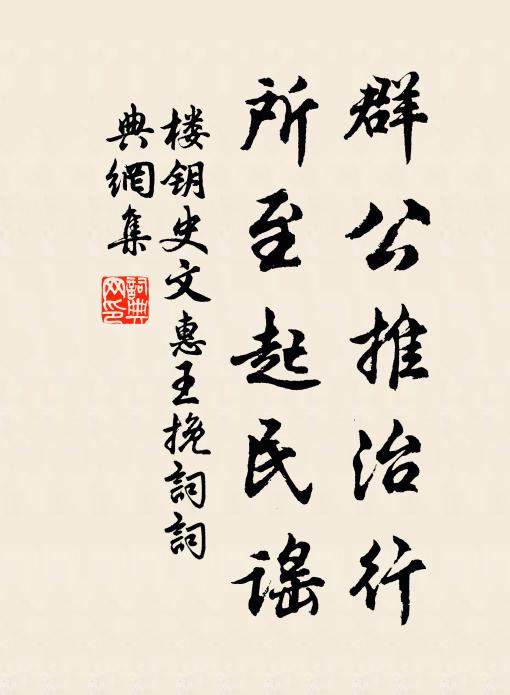 群公推治行
所至起民谣
楼钥史文惠王挽詞詞
典網集
詞典網印